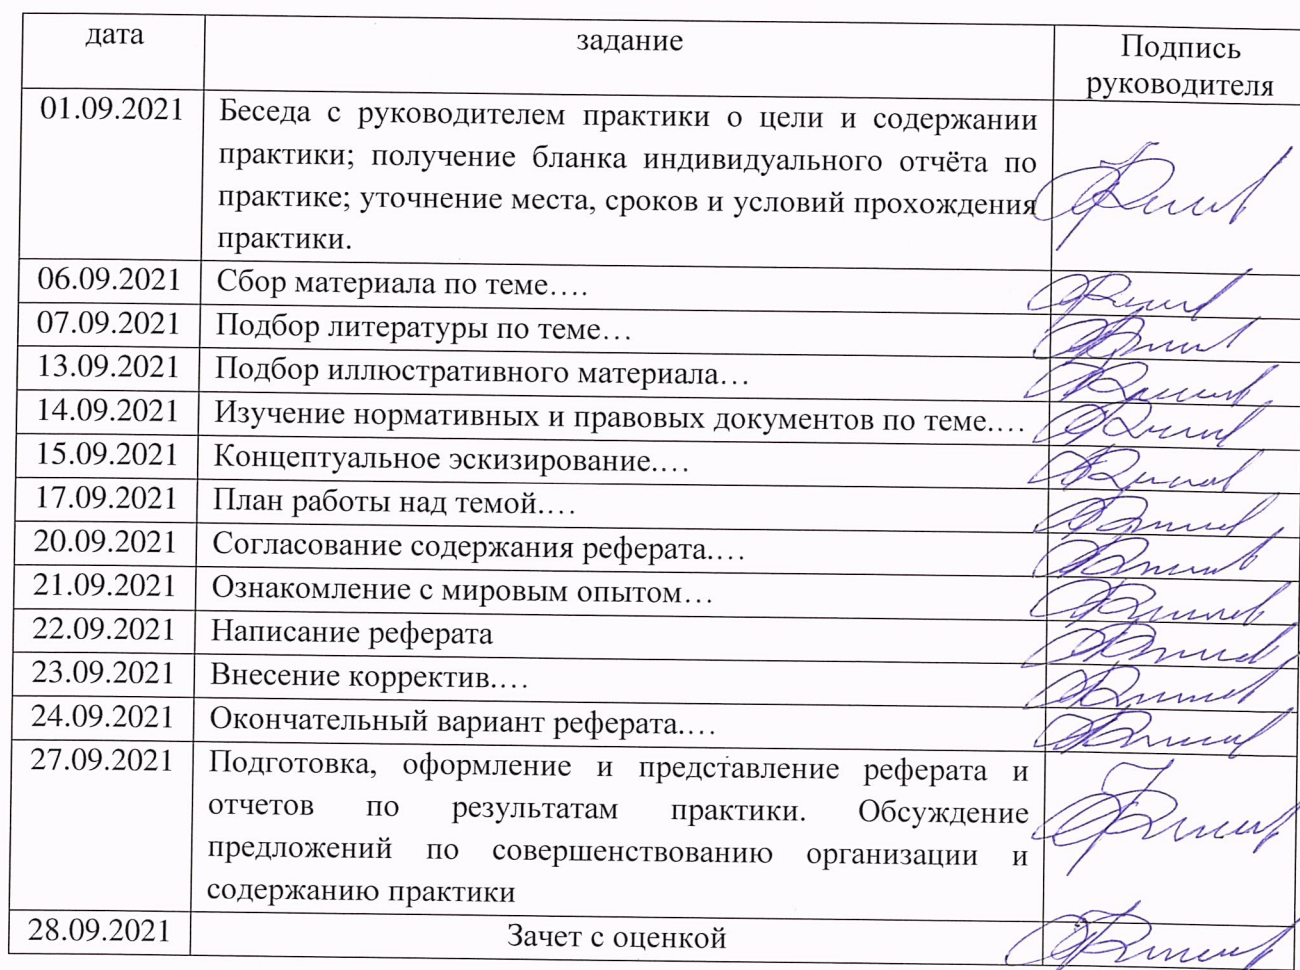 дата задание Подпись
руководителя
01.09.2021 Беседа с руководителем практики о цели и содержании
практики; получение бланка индивидуального отчёта по
практике; уточнение места, сроков и условий прохождения
практики.
06.09.2021 Сбор материала по теме….
07.09.2021 Подбор литературы по теме…
13.09.2021 Подбор иллюстративного материала…
14.09.2021 Изучение нормативных и правовых документов по теме.…
15.09.2021 Концептуальное эскизирование.…
17.09.2021 План работы над темой.…
20.09.2021 Согласование содержания реферата.…
21.09.2021 Ознакомление с мировым опытом…
22.09.2021 Написание реферата
23.09.2021 Внесение корректив.…
24.09.2021 Окончательный вариант реферата.…
27.09.2021 Подготовка, оформление и представление реферата и
отчетов по результатам практики. Обсуждение
предложений по совершенствованию организации и
содержанию практики
28.09.2021 Зачет с оценкой